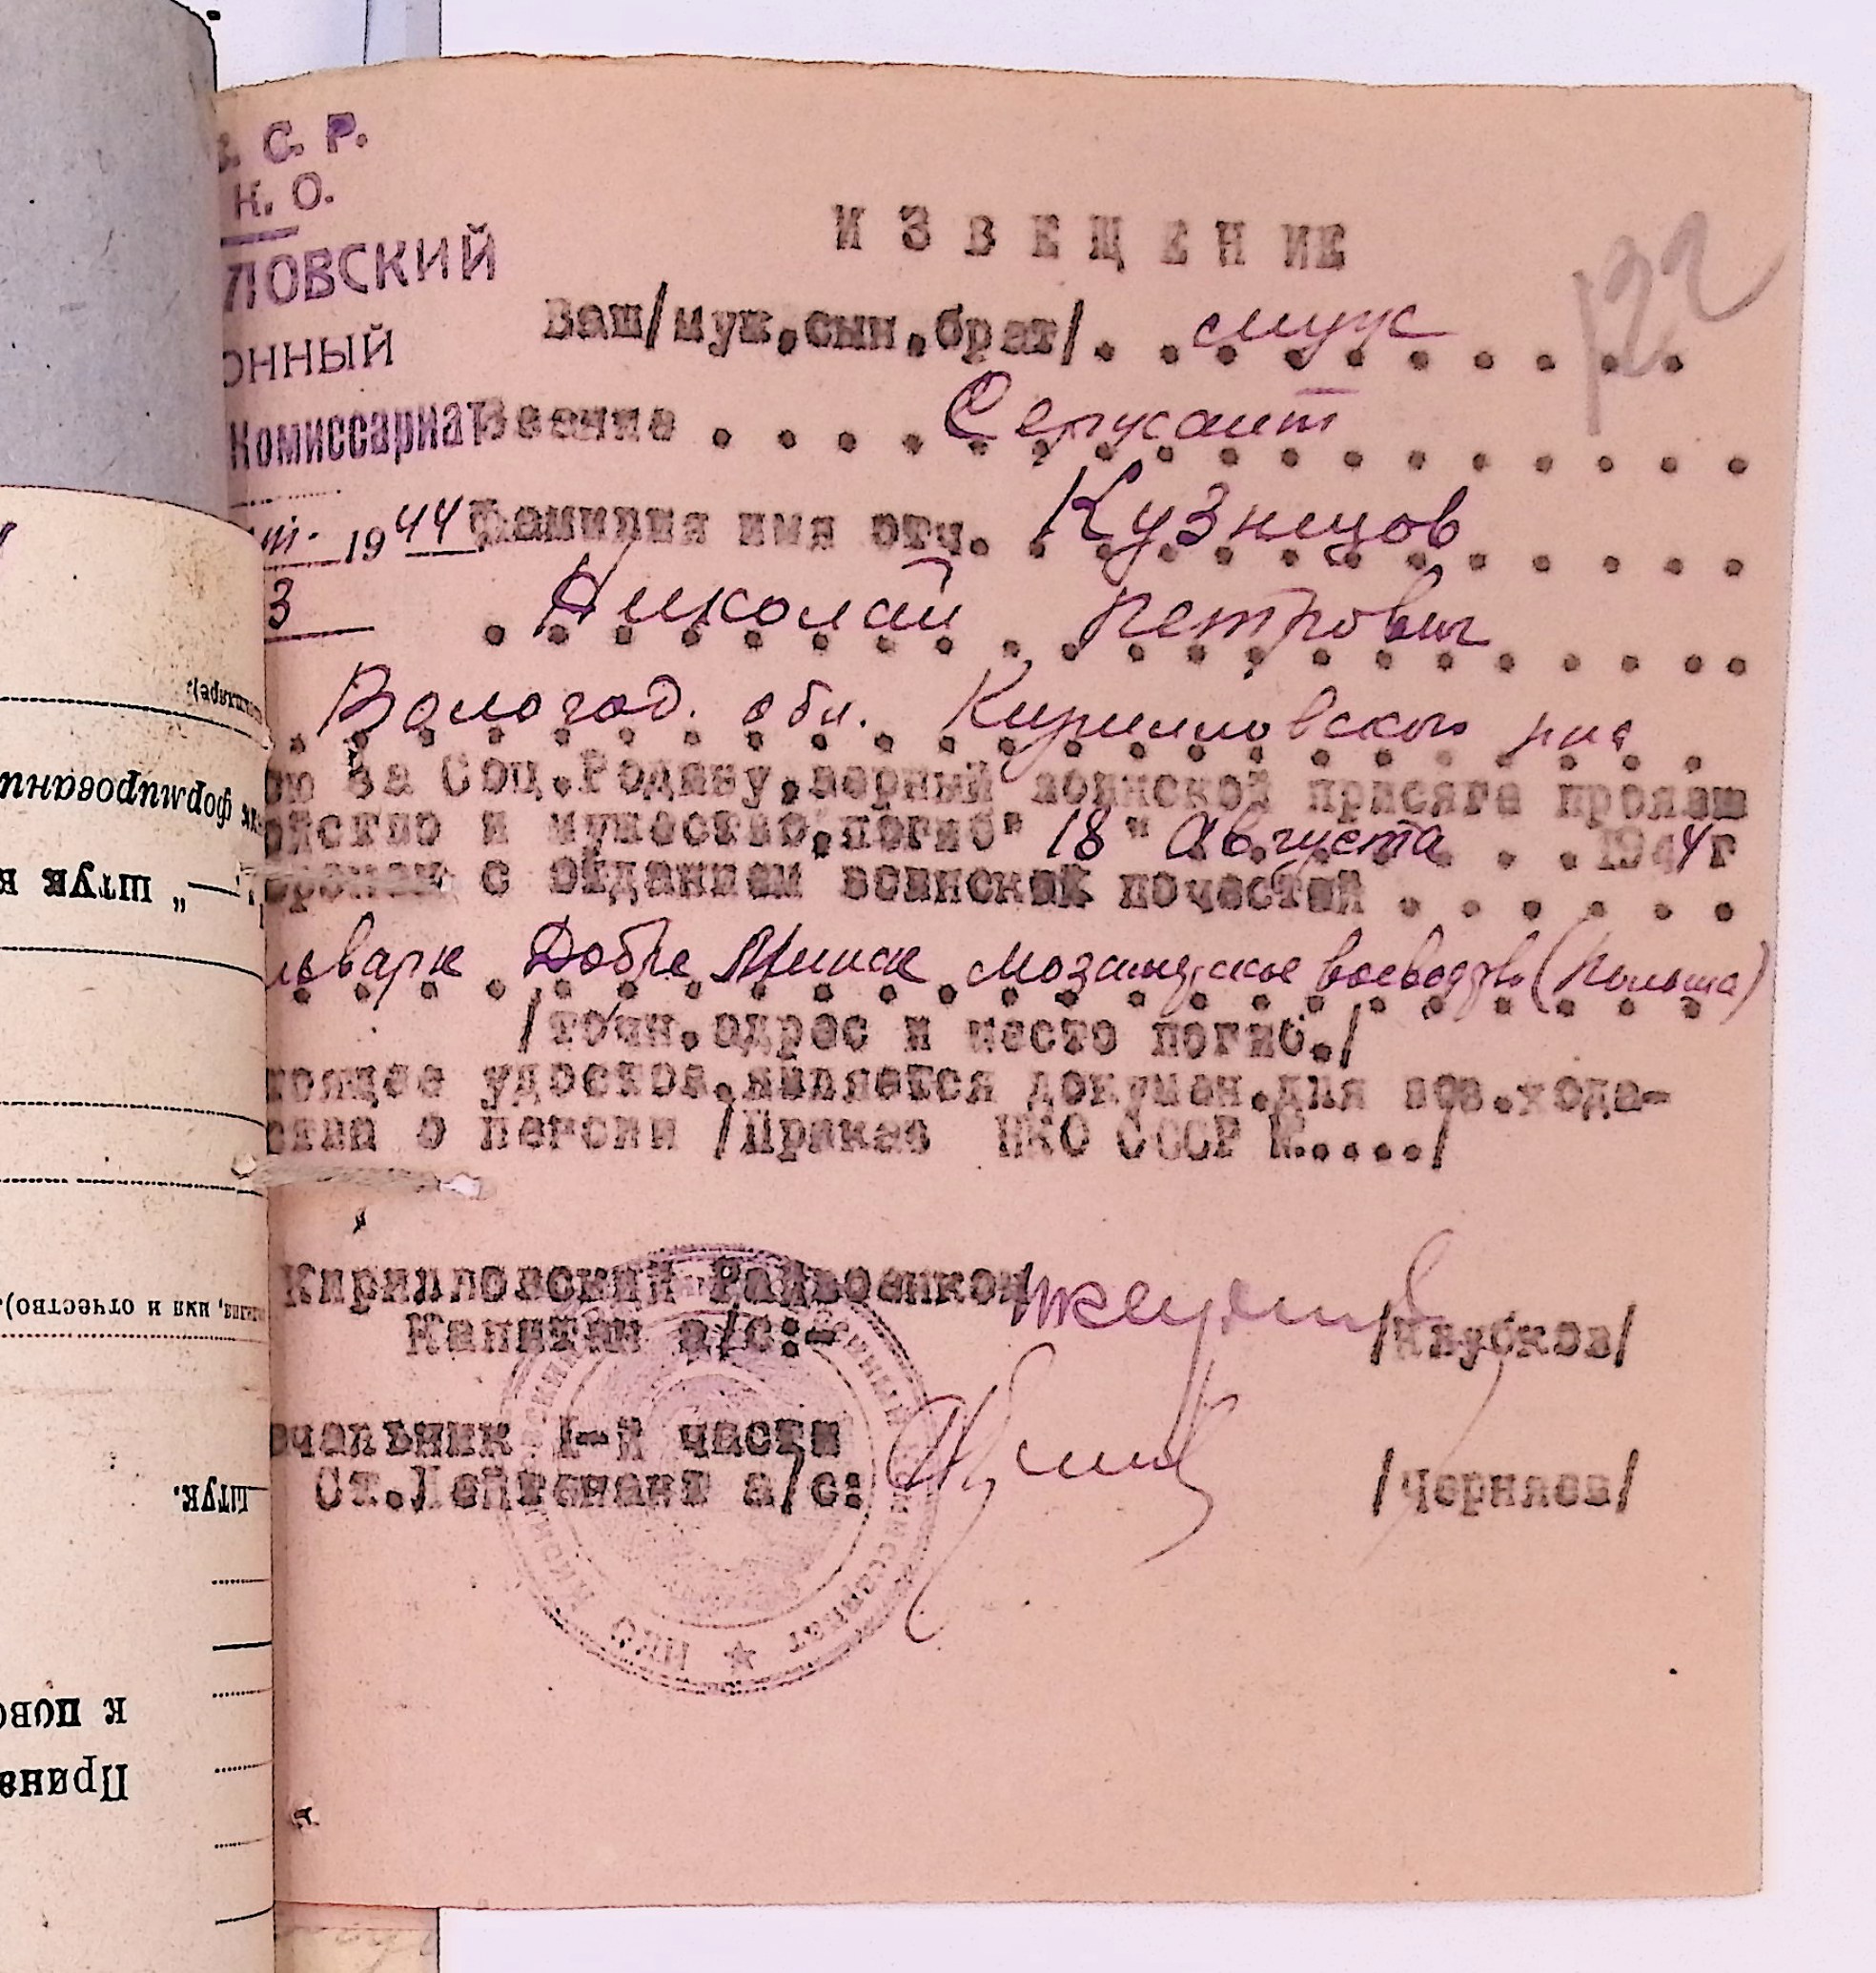 С. Р.
Н. К. О.
ЛОВСКИЙ
ОННЫЙ
Комиссариат
19 44
3
122
ИЗВЕЩЕНИЕ
Ваш/муж.сын.брат/. . муж
Звание . . . . Сержант
Фамилия имя отч. . Кузнецов
Николай Петрович
Вологод. обл. Кирилловского р-на
ою за Соц.Родину,верный воинской присяге прояви
ойство и мужество,погиб" 18 " Августа . . . 1944г
оронен с отданием воинской почестей . . . . . .
льварк Добре Минск Мозовецкое воеводство (Польша)
/точн.адрес и место погиб./
тоящее удостов.является докумен.для воз.хода-
ства о пенсии /Приказ НКО СССР №...../
Кирилловский Райвоенком
Капитан а/с:-
/Ивусков/
ачальник 1-й части
Ст.Лейтенант а/с:
/Черняев/
НКО
комиссариат
формировани
штук
имя и отчество).
штук.
к пово
Призв